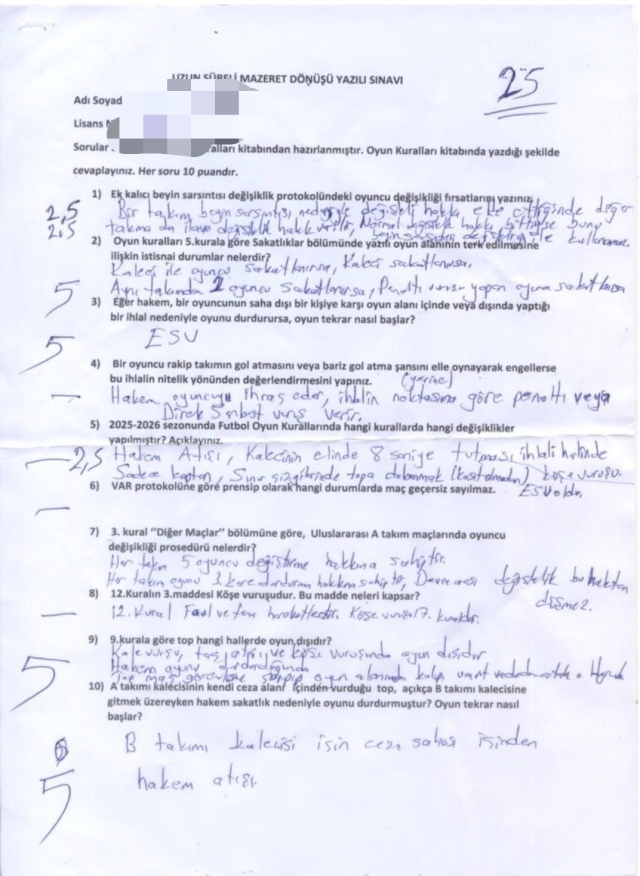 UZUN SÜRELİ MAZERET DÖNÜŞÜ YAZILI SINAVI
25
Adı Soyad
Lisans N
Sorular alları kitabından hazırlanmıştır. Oyun Kuralları kitabında yazdığı şekilde
cevaplayınız. Her soru 10 puandır.
1) Ek kalıcı beyin sarsıntısı değişiklik protokolündeki oyuncu değişikliği fırsatlarını yazınız.
2,5 Bir takım beyin sarsıntısı nedeniyle değişiklik hakkı elde ettiğinde diğer
2,5 takıma da ilave değişiklik hakkı verilir. Normal değişiklik hakkı bittiyse bunu
beyin sarsıntısı değişikliği ile kullanamaz.
2) Oyun kuralları 5.kurala göre Sakatlıklar bölümünde yazılı oyun alanının terk edilmesine
ilişkin istisnai durumlar nelerdir?
Kaleci ile oyuncu sakatlanırsa, Kaleci sakatlanırsa,
5 Aynı takımdan 2 oyuncu sakatlanırsa, Penaltı vuruşu yapan oyuncu sakatlanırsa
3) Eğer hakem, bir oyuncunun saha dışı bir kişiye karşı oyun alanı içinde veya dışında yaptığı
bir ihlal nedeniyle oyunu durdurursa, oyun tekrar nasıl başlar?
5 ESV
4) Bir oyuncu rakip takımın gol atmasını veya bariz gol atma şansını elle oynayarak engellerse
bu ihlalin nitelik yönünden değerlendirmesini yapınız. (yerine)
— Hakem oyuncuyu ihraç eder, ihlalin noktasına göre penaltı veya
Direk Serbest vuruş verir.
5) 2025-2026 sezonunda Futbol Oyun Kurallarında hangi kurallarda hangi değişiklikler
yapılmıştır? Açıklayınız.
— 2,5 Hakem Atışı, Kalecinin elinde 8 saniye tutması ihlali halinde
Sadece kaptan, Sınır çizgilerinde topa dokunmak (kasıt olmadan) köşe vuruşu.
ESV oldu.
6) VAR protokolüne göre prensip olarak hangi durumlarda maç geçersiz sayılmaz.
—
7) 3. kural "Diğer Maçlar" bölümüne göre, Uluslararası A takım maçlarında oyuncu
değişikliği prosedürü nelerdir?
Her takım 5 oyuncu değiştirme hakkına sahiptir.
Her takım oyunu 3 kere durdurma hakkına sahiptir, Devre arası değişiklik bu haktan
düşmez.
8) 12.Kuralın 3.maddesi Köşe vuruşudur. Bu madde neleri kapsar?
— 12. Kural Faul ve fena hareketlerdir. Köşe vuruşu 17. kuraldır.
9) 9.kurala göre top hangi hallerde oyun dışıdır?
Kale vuruşu, taç atışı ve köşe vuruşunda oyun dışıdır
5 Hakem oyunu durdurduğunda
Top maç görevlisine çarpıp oyun alanında kalıp
10) A takımı kalecisinin kendi ceza alanı içinden vurduğu top, açıkça B takımı kalecisine
gitmek üzereyken hakem sakatlık nedeniyle oyunu durdurmuştur? Oyun tekrar nasıl
başlar?
B takımı kalecisi için ceza sahası içinden
5 hakem atışı